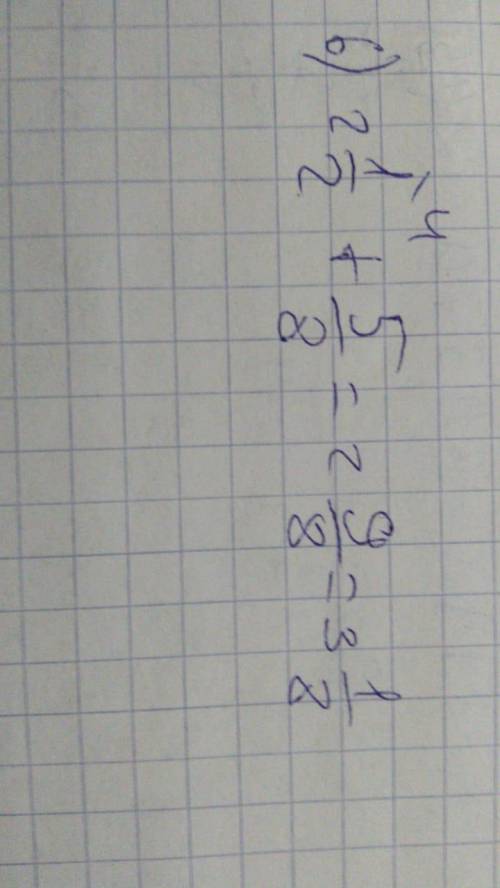 б) 2 1/2 \4 + 5/8 = 2 9/8 = 3 1/8